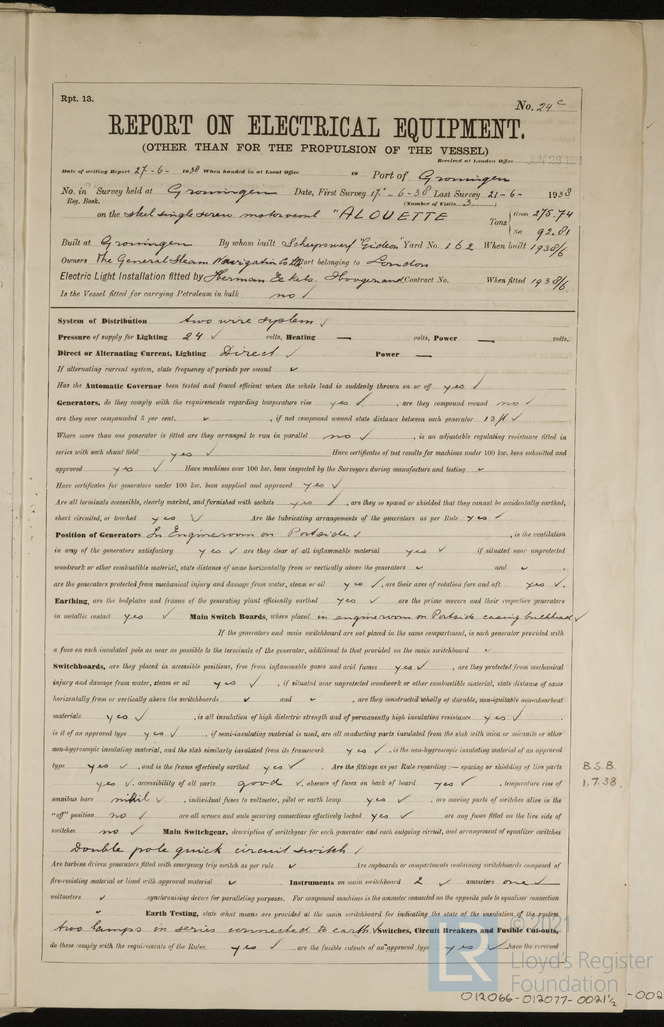 Rpt. 13.
No. 24c
REPORT ON ELECTRICAL EQUIPMENT.
(OTHER THAN FOR THE PROPULSION OF THE VESSEL)
Received at London Office
Date of writing Report 27-6-1938 When handed in at Local Office 19 Port of Groningen
No. in Survey held at Groningen Date, First Survey 17-6-38 Last Survey 21-6-1938
Reg. Book. (Number of Visits 3)
on the steel single screw motorvessel "ALOUETTE Tons Gross 275.74
Net 92.81
Built at Groningen By whom built Scheepswerf "Gideon" Yard No. 162 When built 1938/6
Owners The General Steam Navigation Co Ltd Port belonging to London
Electric Light Installation fitted by Herman Contract No. When fitted 1938/6.
Is the Vessel fitted for carrying Petroleum in bulk no ✓
System of Distribution two wire system ✓
Pressure of supply for Lighting 24 ✓ volts, Heating — volts, Power — volts.
Direct or Alternating Current, Lighting Direct ✓ Power —
If alternating current system, state frequency of periods per second ✓
Has the Automatic Governor been tested and found efficient when the whole load is suddenly thrown on or off yes ✓
Generators, do they comply with the requirements regarding temperature rise yes ✓, are they compound wound no ✓
are they over compounded 5 per cent. ✓, if not compound wound state distance between each generator 13 ft ✓
Where more than one generator is fitted are they arranged to run in parallel no ✓, is an adjustable regulating resistance fitted in
series with each shunt field yes ✓ Have certificates of test results for machines under 100 kw. been submitted and
approved yes ✓ Have machines over 100 kw. been inspected by the Surveyors during manufacture and testing ✓
Have certificates for generators under 100 kw. been supplied and approved yes ✓
Are all terminals accessible, clearly marked, and furnished with sockets yes ✓, are they so spaced or shielded that they cannot be accidentally earthed,
short circuited, or touched yes ✓ Are the lubricating arrangements of the generators as per Rule yes ✓
Position of Generators In Engineroom on Portside ✓, is the ventilation
in way of the generators satisfactory yes ✓ are they clear of all inflammable material yes ✓ if situated near unprotected
woodwork or other combustible material, state distance of same horizontally from or vertically above the generators ✓ and ✓,
are the generators protected from mechanical injury and damage from water, steam or oil yes ✓, are their axes of rotation fore and aft yes ✓.
Earthing, are the bedplates and frames of the generating plant efficiently earthed yes ✓ are the prime movers and their respective generators
in metallic contact yes ✓ Main Switch Boards, where placed in engineroom on Portside casing bulkhead ✓
If the generators and main switchboard are not placed in the same compartment, is each generator provided with
a fuse on each insulated pole as near as possible to the terminals of the generator, additional to that provided on the main switchboard ✓
Switchboards, are they placed in accessible positions, free from inflammable gases and acid fumes yes ✓, are they protected from mechanical
injury and damage from water, steam or oil yes ✓, if situated near unprotected woodwork or other combustible material, state distance of same
horizontally from or vertically above the switchboards ✓ and ✓, are they constructed wholly of durable, non-ignitable non-absorbent
materials yes ✓, is all insulation of high dielectric strength and of permanently high insulation resistance yes ✓,
is it of an approved type yes ✓, if semi-insulating material is used, are all conducting parts insulated from the slab with mica or micanite or other
non-hygroscopic insulating material, and the slab similarly insulated from its framework yes ✓, is the non-hygroscopic insulating material of an approved
type yes ✓, and is the frame effectively earthed yes ✓ Are the fittings as per Rule regarding:— spacing or shielding of live parts
B.S.B.
yes ✓, accessibility of all parts good ✓, absence of fuses on back of board yes ✓, temperature rise of
1.7.38.
omnibus bars nihil ✓, individual fuses to voltmeter, pilot or earth lamp yes ✓, are moving parts of switches alive in the
"off" position no ✓ are all screws and nuts securing connections effectively locked yes ✓ are any fuses fitted on the live side of
switches no ✓ Main Switchgear, description of switchgear for each generator and each outgoing circuit, and arrangement of equalizer switches
Double pole quick circuit switch ✓
Are turbine driven generators fitted with emergency trip switch as per rule ✓ Are cupboards or compartments containing switchboards composed of
fire-resisting material or lined with approved material ✓ Instruments on main switchboard 2 ✓ ammeters one ✓
voltmeters ✓ synchronising device for paralleling purposes. For compound machines is the ammeter connected on the opposite pole to equaliser connection
✓ Earth Testing, state what means are provided at the main switchboard for indicating the state of the insulation of the system
two lamps in series connected to earth ✓ Switches, Circuit Breakers and Fusible Cut-outs,
do these comply with the requirements of the Rules yes ✓ are the fusible cutouts of an approved type yes ✓ have the reversed
© 2021
LR
Lloyd's Register
Foundation
012066-012077-0021½
-002